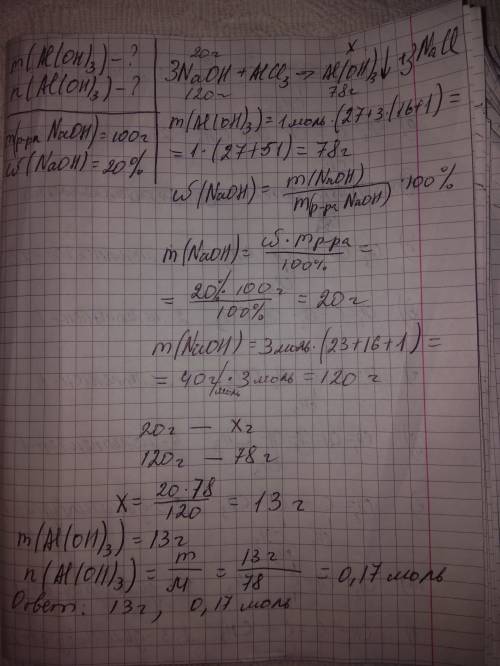 m(Al(OH)₃) - ?
n(Al(OH)₃) - ?
m(р-ра NaOH) = 100г
ω(NaOH) = 20%
20г x
3NaOH + AlCl₃ → Al(OH)₃↓ + 3NaCl
120г 78г
m(Al(OH)₃) = 1 моль · (27+3·(16+1) =
= 1 · (27+51) = 78г
ω(NaOH) = m(NaOH) / m(р-ра NaOH) · 100%
m(NaOH) = ω · m р-ра / 100% =
= 20% · 100 г / 100% = 20г
m(NaOH) = 3 моль · (23+16+1) =
= 40г/моль · 3 моль = 120 г
20г — Xг
120г — 78г
X = 20 · 78 / 120 = 13 г
m(Al(OH)₃) = 13г
n(Al(OH)₃) = m / M = 13г / 78 = 0,17 моль
Ответ: 13г, 0,17 моль